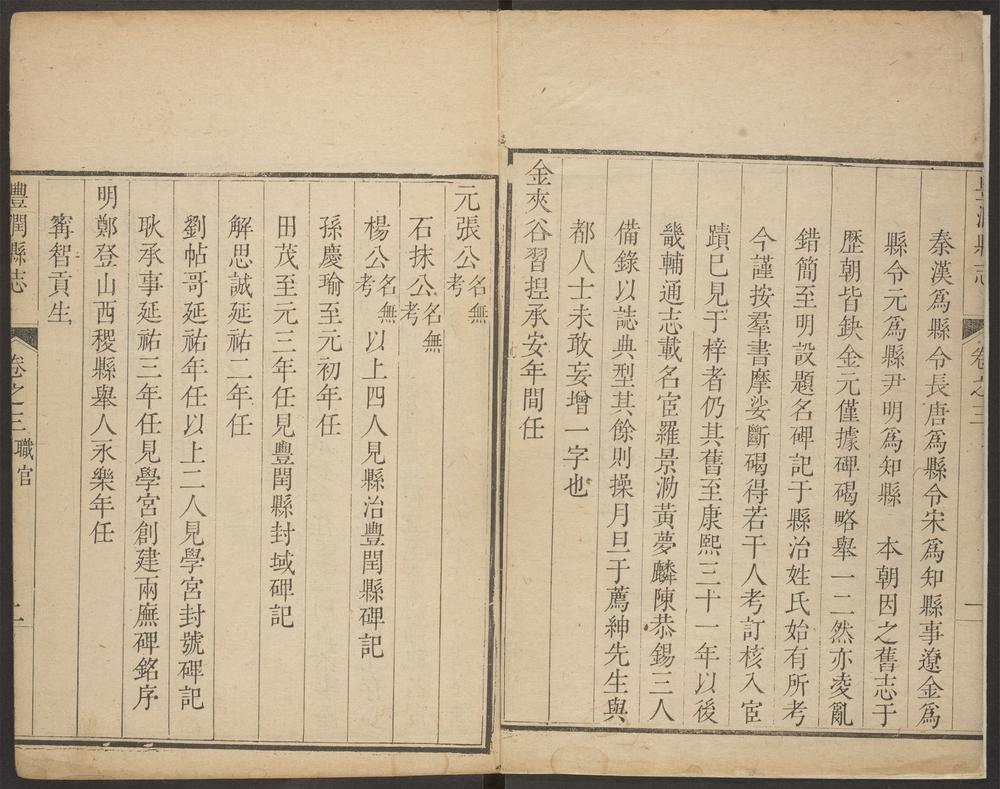 豐潤縣志
卷之三
秦漢爲縣令長唐爲縣令宋爲知縣事遼金爲
縣令元爲縣尹明爲知縣　本朝因之舊志于
歷朝皆缺金元僅據碑碣略舉一二然亦凌亂
錯簡至明設題名碑記于縣治姓氏始有所考
今謹按羣書摩娑斷碣得若干人考訂核入宦
蹟巳見于梓者仍其舊至康熙三十一年以後
畿輔通志載名宦羅景泐黃夢麟陳恭錫三人
備錄以誌典型其餘則操月旦于薦紳先生與
都人士未敢妄增一字也
金夾谷習捏承安年間任
元張公名無考
石抹公名無考
楊公名無考以上四人見縣治豐閏縣碑記
孫慶瑜至元初年任
田茂至元三年任見豐閏縣封域碑記
解思誠延祐二年任
劉帖哥延祐年任以上二人見學宮封號碑記
耿承事延祐三年任見學宮創建兩廡碑銘序
明鄭登山西稷縣舉人永樂年任
甯智貢生
豐潤縣志
卷之三
職官
二